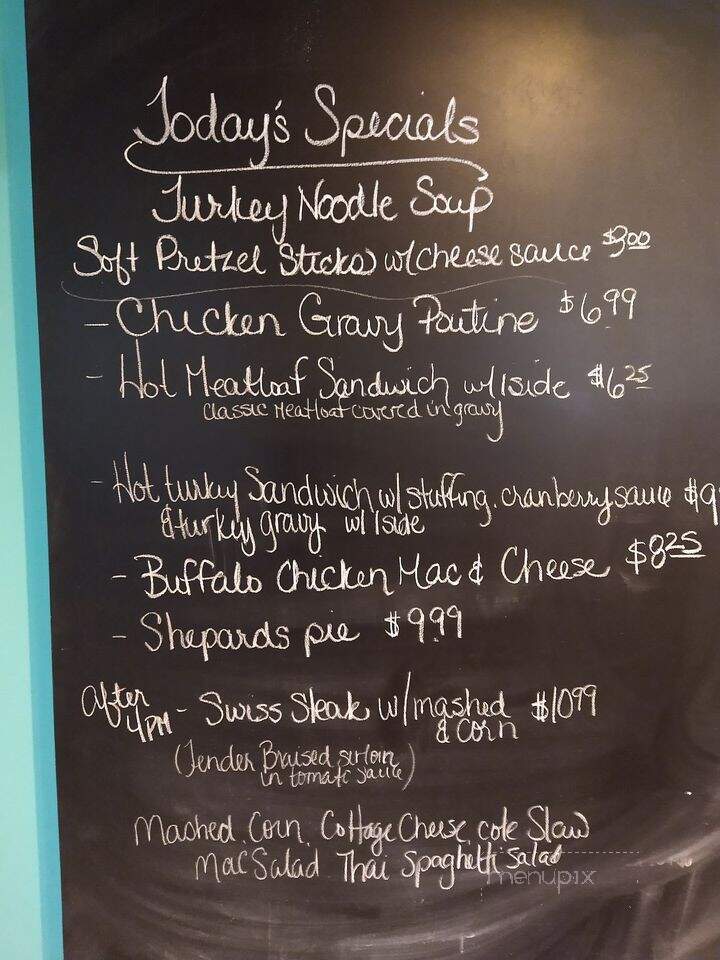 Today's Specials
Turkey Noodle Soup
Soft Pretzel Sticks w/cheese sauce $3.00
- Chicken Gravy Poutine $6.99
- Hot Meatloaf Sandwich w/1side $6.25
classic Meatloaf covered in gravy
- Hot turkey Sandwich w/stuffing, cranberry sauce $9
& turkey gravy w/1side
- Buffalo Chicken Mac & Cheese $8.25
- Shepards pie $9.99
After 4PM - Swiss Steak w/mashed $10.99
& corn
(Tender Braised sirloin
in tomato sauce)
Mashed, Corn, Cottage Cheese, cole Slaw
Mac Salad Thai Spaghetti Salad
menupix